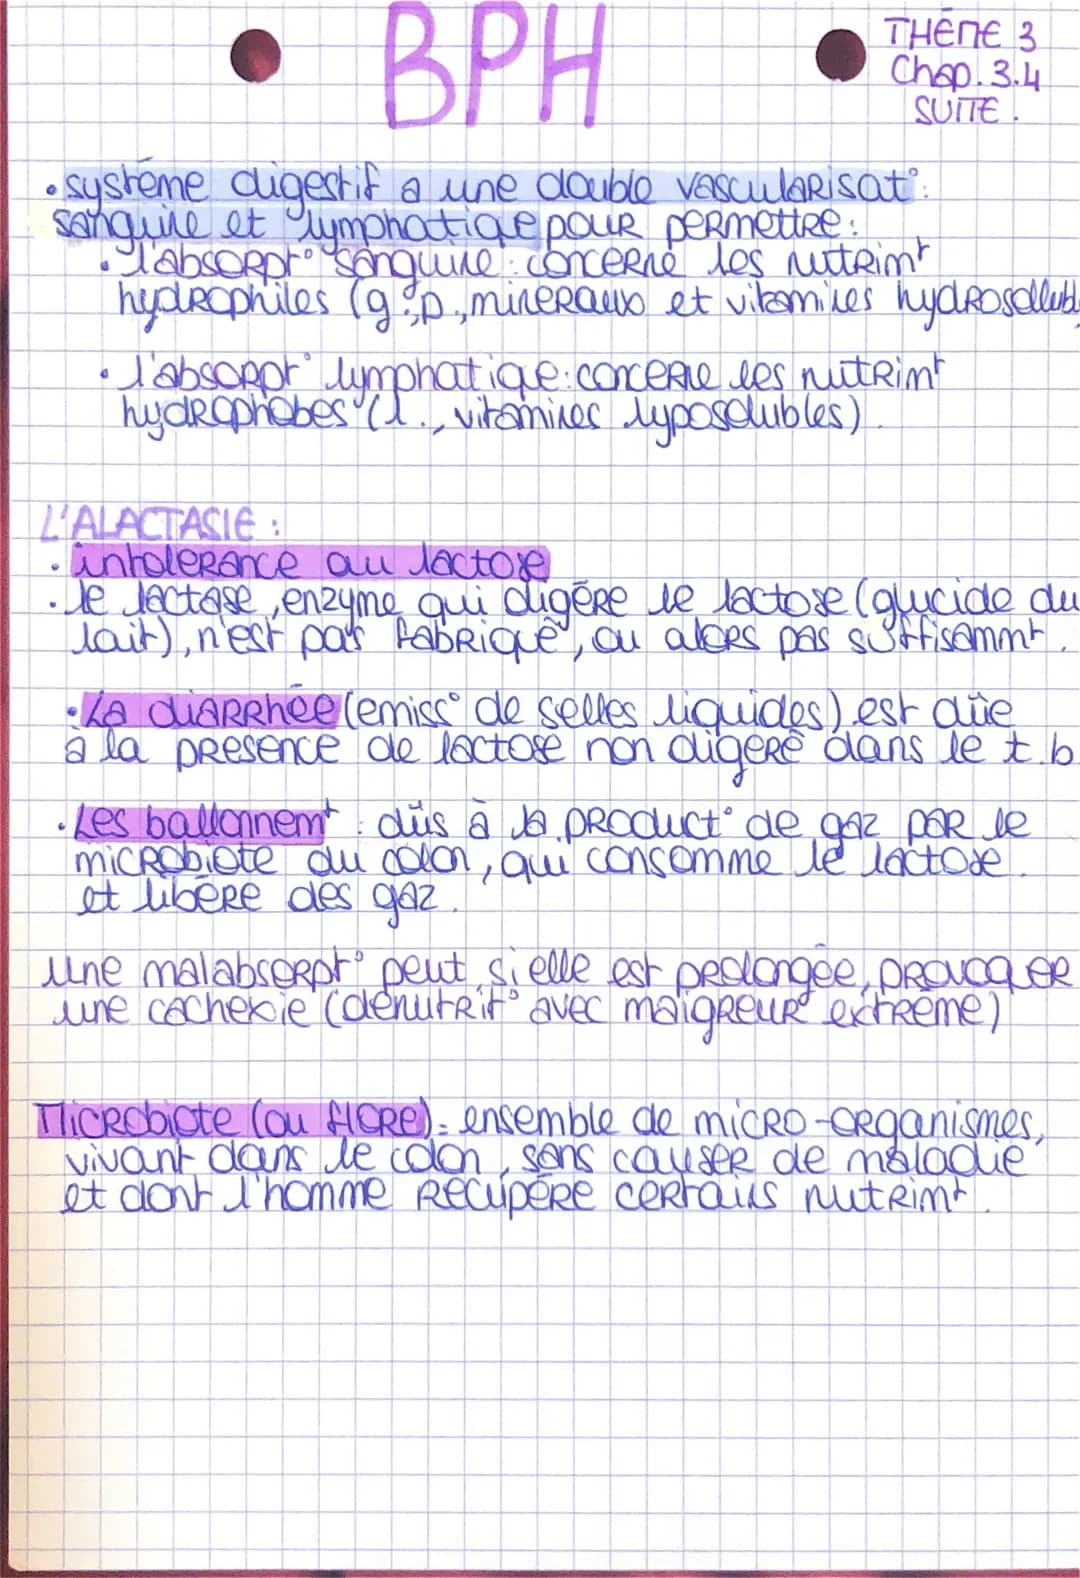 BPH
THÈME 3
Chap. 3.4
SUITE.
• système digestif a une double vascularisat°:
sanguine et lymphatique pour permettre:
• l'absorpt° sanguine: concerne les nutrimt
hydrophiles (g., p., mineraux et vitamines hydrosolubl
• l'absorpt° lymphatique: concerne les nutrimt
hydrophobes (l., vitamines lyposolubles).
L'ALACTASIE:
• intolerance au lactose
• le lactase, enzyme qui digère le lactose (glucide du
lait), n'est pas fabriqué, ou alors pas suffisammt.
• La diarrhée (emiss° de selles liquides) est dûe
à la presence de lactose non digeré dans le t.b
• Les ballonnemt: dûs à la product° de gaz par le
microbiote du colon, qui consomme le lactose.
et libère des gaz.
Une malabsorpt° peut, si elle est prolongée, provoquer
une cachexie (dénutrit° avec maigreur extrême)
Microbiote (ou flore): ensemble de micro-organismes,
vivant dans le colon, sans causer de maladie
et dont l'homme récupère certains nutrimt.